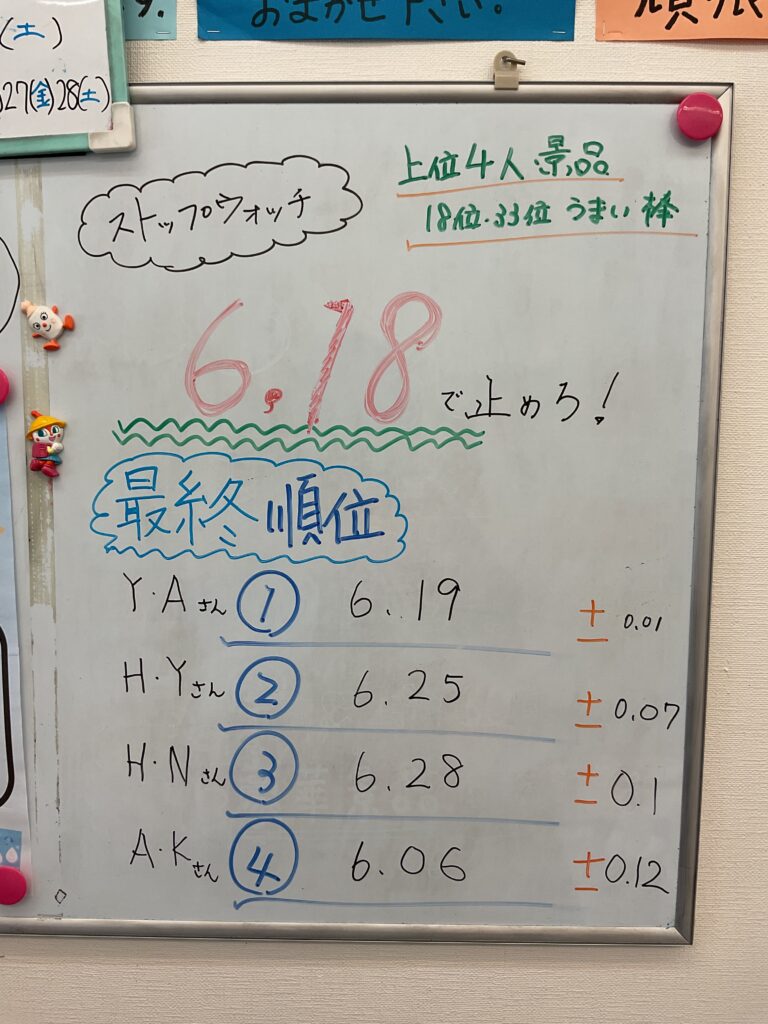 (土)
27(金)28(土)
おまかせ下さい。
ストップウォッチ
上位4人 景品
18位・33位 うまい棒
6.18で止めろ!
最終順位
Y・Aさん ① 6.19 ± 0.01
H・Yさん ② 6.25 ± 0.07
H・Nさん ③ 6.28 ± 0.1
A・Kさん ④ 6.06 ± 0.12